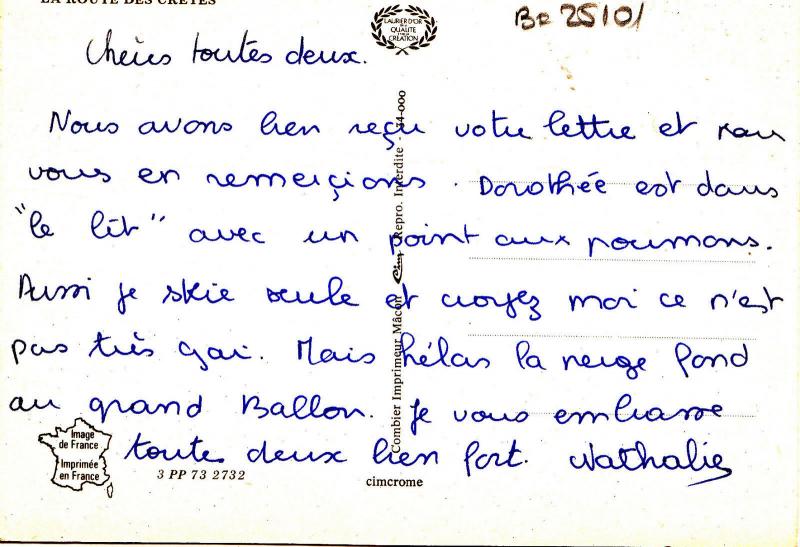 LA ROUTE DES CRÊTES
LAURIER D'OR
DE
QUALITÉ
CRÉATION
BR 25101
Chères toutes deux.
Nous avons bien reçu votre lettre et nous
vous en remerçions. Dorothée est dans
"le lit" avec un point aux poumons.
Aussi je skie seule et croyez moi ce n'est
pas très gai. Mais hélas la neige fond
au grand Ballon. Je vous embrasse
toute deux bien fort. Nathalie
Combier Imprimeur Mâcon Cim Repro. Interdite - 34-000
Image
de France
Imprimée
en France
3 PP 73 2732
cimcrome